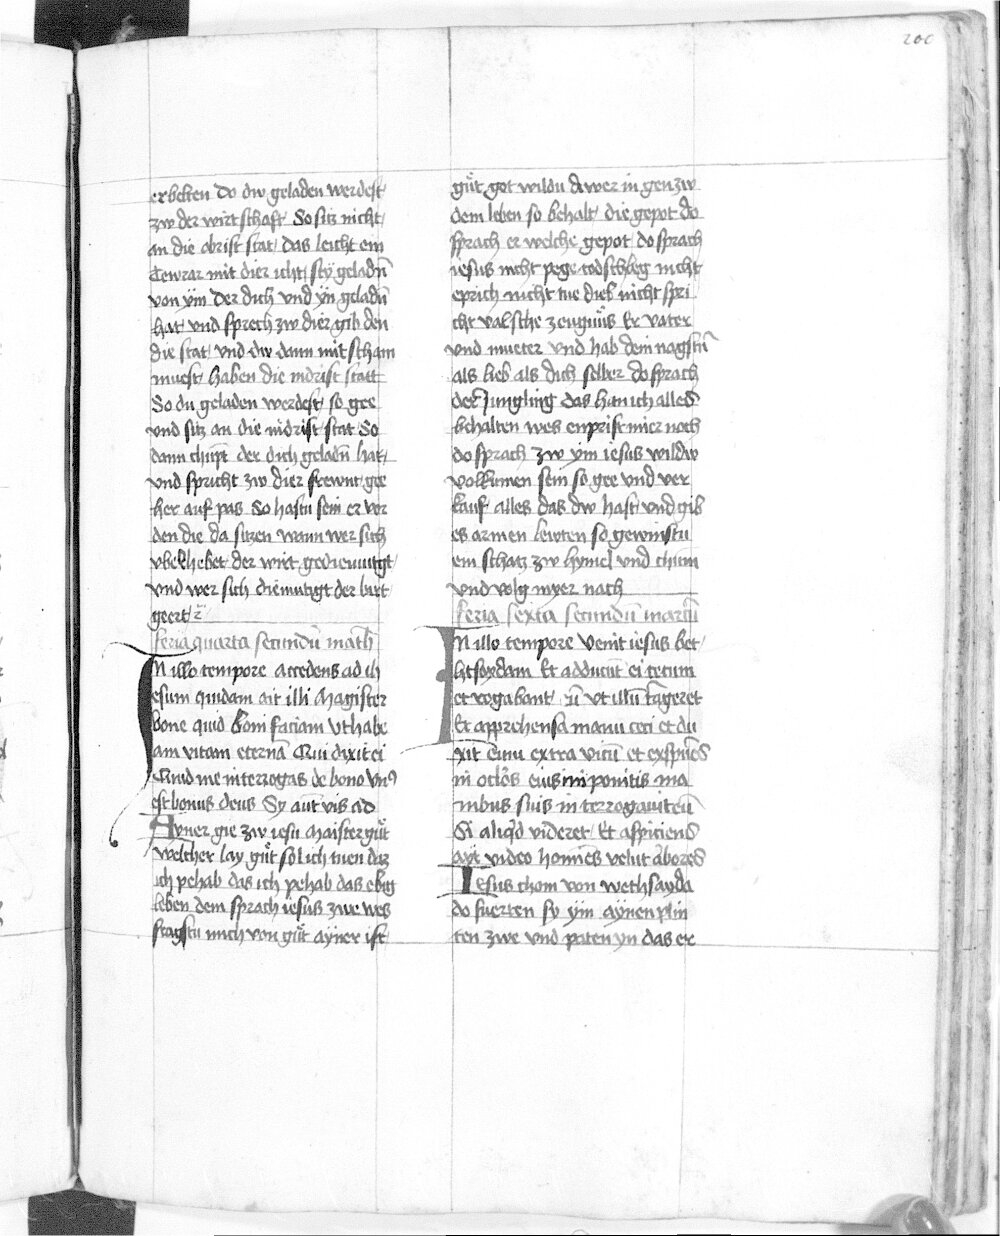 200
erbelten do dw geladen werdest
zw der wirtschaft So sitz nicht
an die obrist stat das leicht ein
Tewrar mit dier icht sey geladn̄
von ym der dich vnd yn geladn̄
hat vnd sprech zw dier gib den
die stat vnd dw dann mit scham
muest haben die nidrist statt
So du geladen werdest so gee
vnd sitz an die nidrist stat So
dann chūpt der dich geladn̄ hat
vnd spricht zw dier frewnt gee
her auf pas So hastu sein er vor
den die da sitzen wann wer sich
vberhebet der wirt gediemuttgt
vnd wer sich diemutigt der birt
geert
feria quarta secundū math
In illo tempore accedens ad ih
esum quidam ait illi Magister
bone quid boni faciam vt habe
am vitam eternā Qui dixit ei
Quid me interrogas de bono vnꝰ
est bonus deus Sy aūt vis ad
Ayner gie zw iesu Maister gůt
welcher lay gůt sol ich tuen daz
ich pehab das ich pehab das ebig
leben dem sprach iesus zwe wes
fragstu mich von gůt ayner ist
gůt got wildu awer in gen zw
dem leben so behalt die gepot do
sprach er welche gepot do sprach
iesus nicht pege todschleg nicht
eprich nicht tue dieb nicht spri
cht valsche zeugnůs Er vater
vnd mueter vnd hab dein nagstn̄
als lieb als dich selber do sprach
der Jungling das han ich alles
behalten wes enprist mier noch
do sprach zw ym iesus wildw
volkumen sein so gee vnd ver
kauf alles das dw hast vnd gib
es armen lewten so gewinstu
ein schatz zw hymel vnd chum
vnd volg myer nach
feria sexta secundū marcū
In illo tempore venit iesus bet
htsaydam Et adducūt ei cecum
et rogabant eū vt illū tāgeret
Et apprehensa manu ceci et du
xit eum extra vicū et exspuēs
in oclōs eius inponitis ma
nibus suis interrogauit eū
Si aliqͥd videret Et aspiciens
ayt video homīes velut arbores
Iesus chom von wethsayda
do fuerten sy ym aynen plin
ten zwe vnd paten yn das er